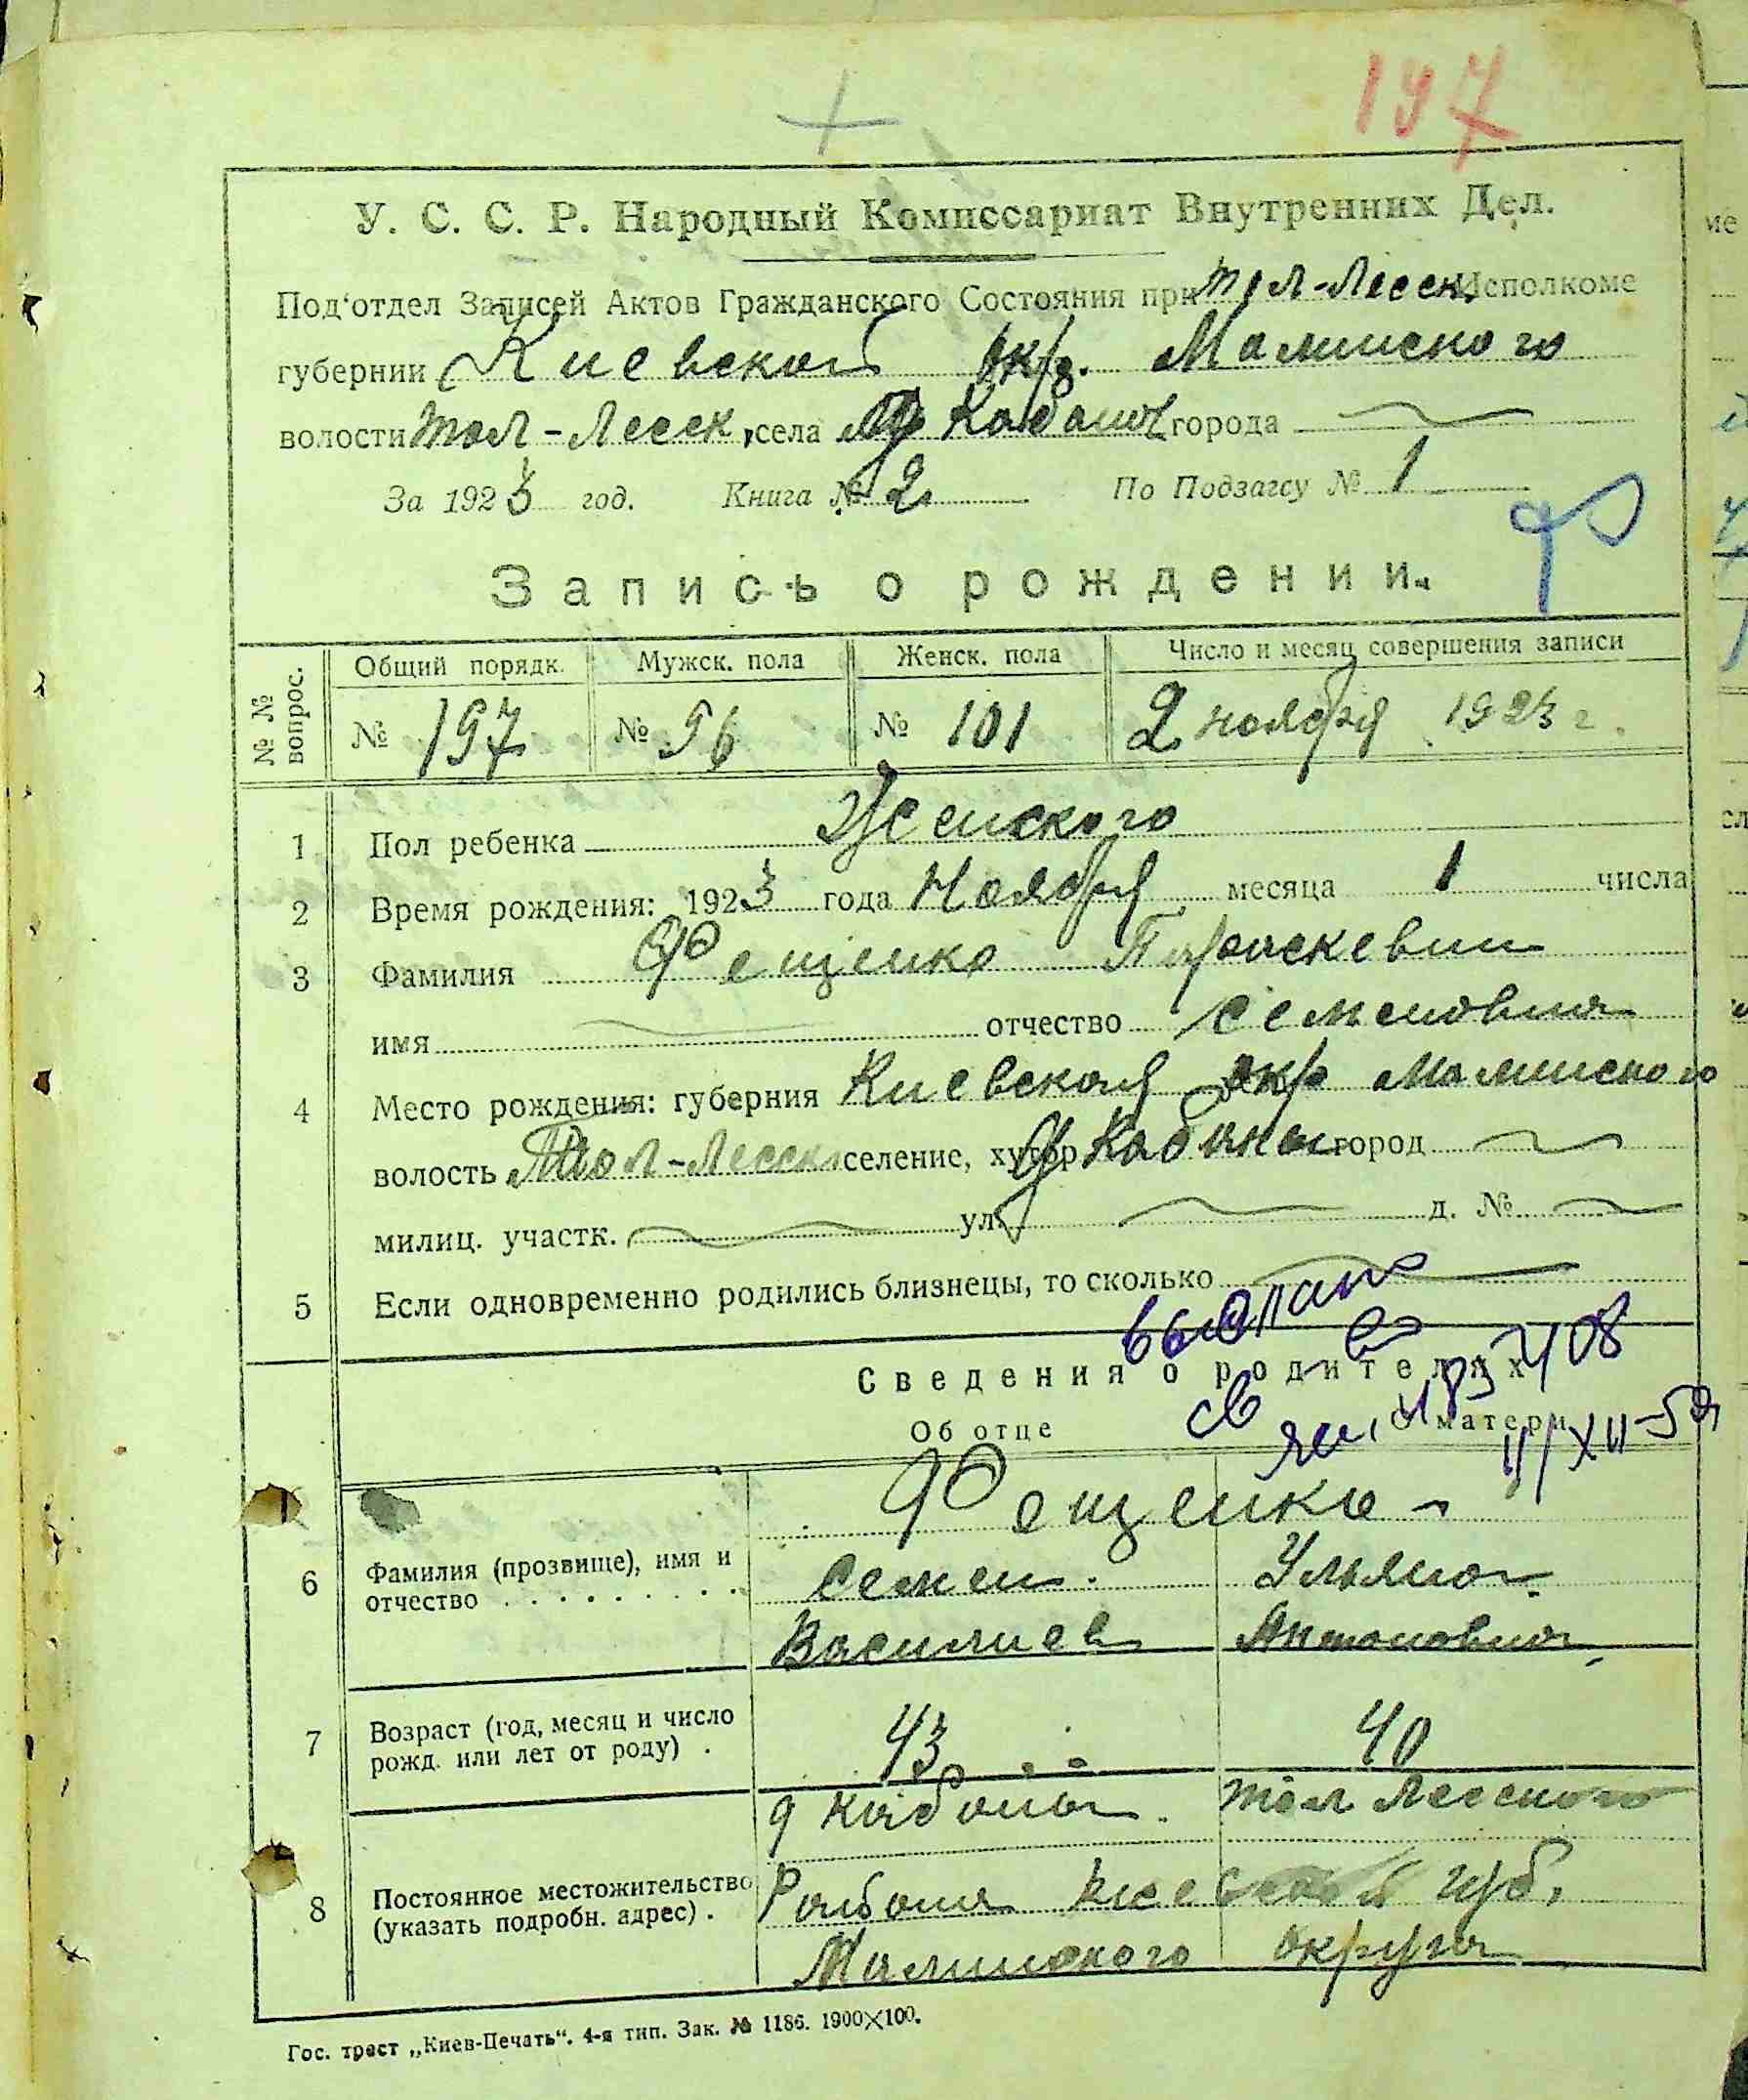 197
У. С. С. Р. Народный Комиссариат Внутренних Дел.
Под'отдел Записей Актов Гражданского Состояния при Тол-Лесск. Исполкоме
губернии Киевской окр. Малинского
волости Тол-Лесск, села д Кабаны города
За 1923 год. Книга № 2 По Подзагсу № 1
Запись о рождении.
№ № вопрос. Общий порядк. Мужск. пола Женск. пола Число и месяц совершения записи
№ 197 № 96 № 101 2 ноября 1923 г.
1 Пол ребенка Женского
2 Время рождения: 1923 года Ноября месяца 1 числа
3 Фамилия Фещенко Параскевия
имя отчество Семеновна
4 Место рождения: губерния Киевская окр Малинского
волость Тол-Лесск селение, хутор д Кабаны город
милиц. участк. ул. д. №
5 Если одновременно родились близнецы, то сколько
выдано
св
408
Сведения о родителях
Об отце О матери
Фещенко
6 Фамилия (прозвище), имя и отчество Семен Ульяна
Василиев Антоновна
7 Возраст (год, месяц и число рожд. или лет от роду) 43 40
8 Постоянное местожительство (указать подробн. адрес) д Кабаны Тол Лесского
Района Киевской губ.
Малинского округа
Гос. трест „Киев-Печать“. 4-я тип. Зак. № 1186. 1900×100.